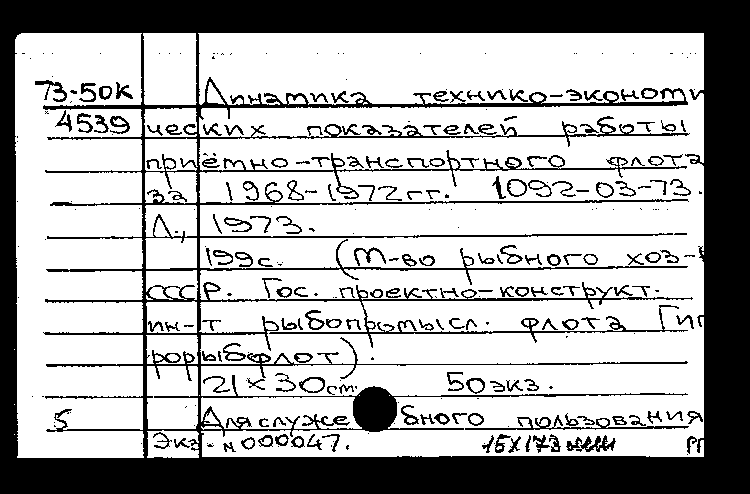 73-50К Динамика технико-экономи
4539 ческих показателей работы
приёмно-транспортного флота
за 1968-1972гг. 1092-03-73.
Л., 1973.
199с. (М-во рыбного хоз-
СССР. Гос. проектно-конструкт.
ин-т рыбопромысл. флота Гип
рорыбфлот).
21×30см. 50экз.
5 Для служебного пользования
Экз. N 000047.